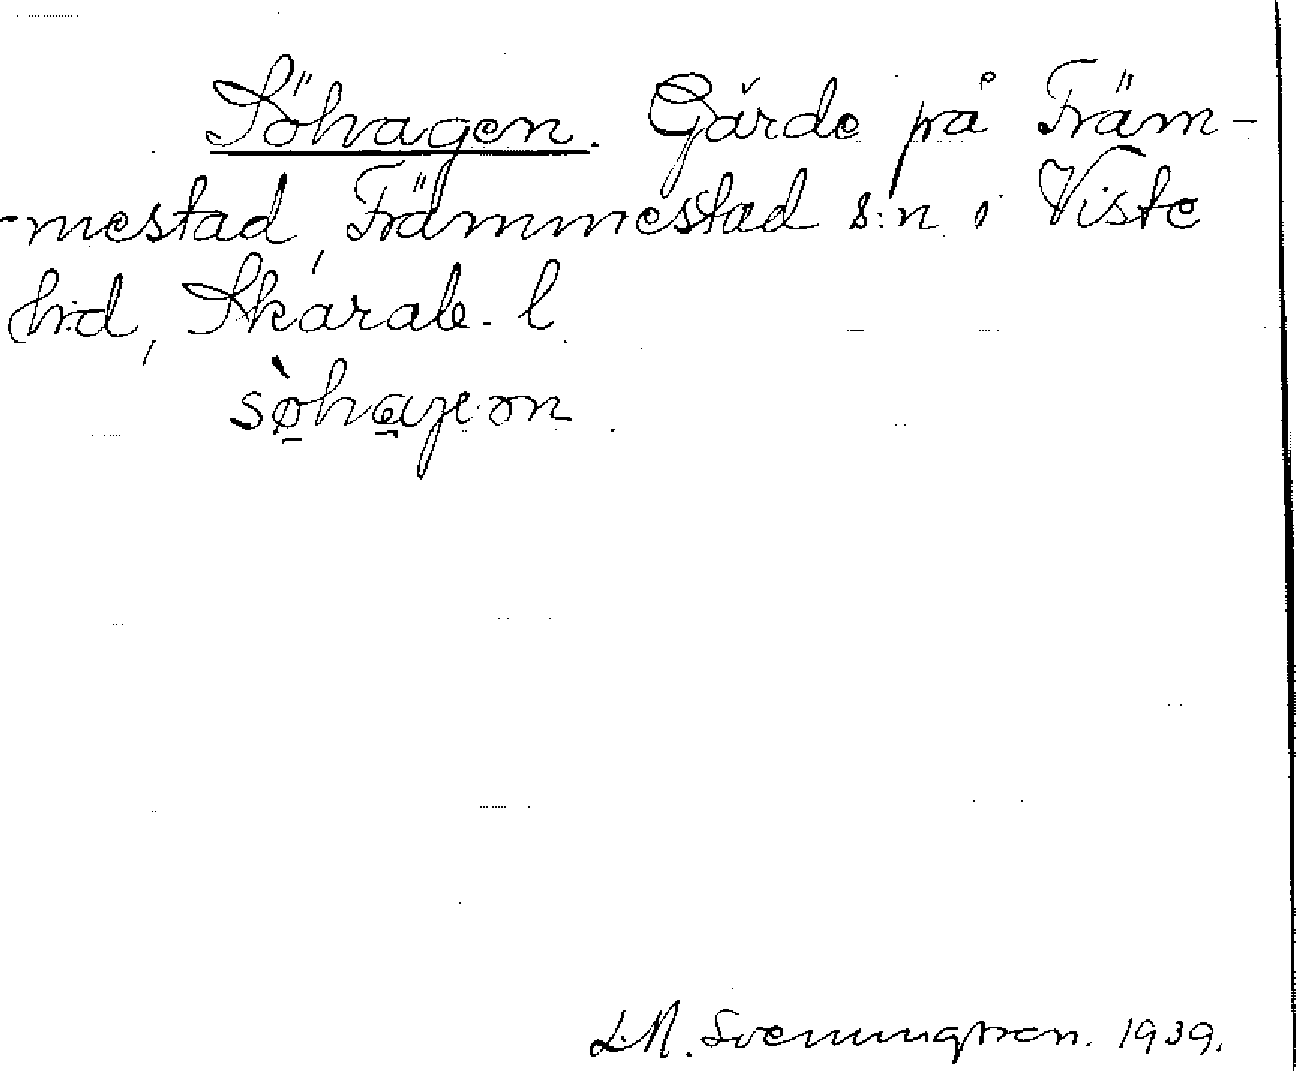 Söhagen. Gärde på Främ-
-mestad, Främmestad s:n i Viste
h:d, Skarab. l.
sø̀hagen
L.M. Svenungsson. 1939.